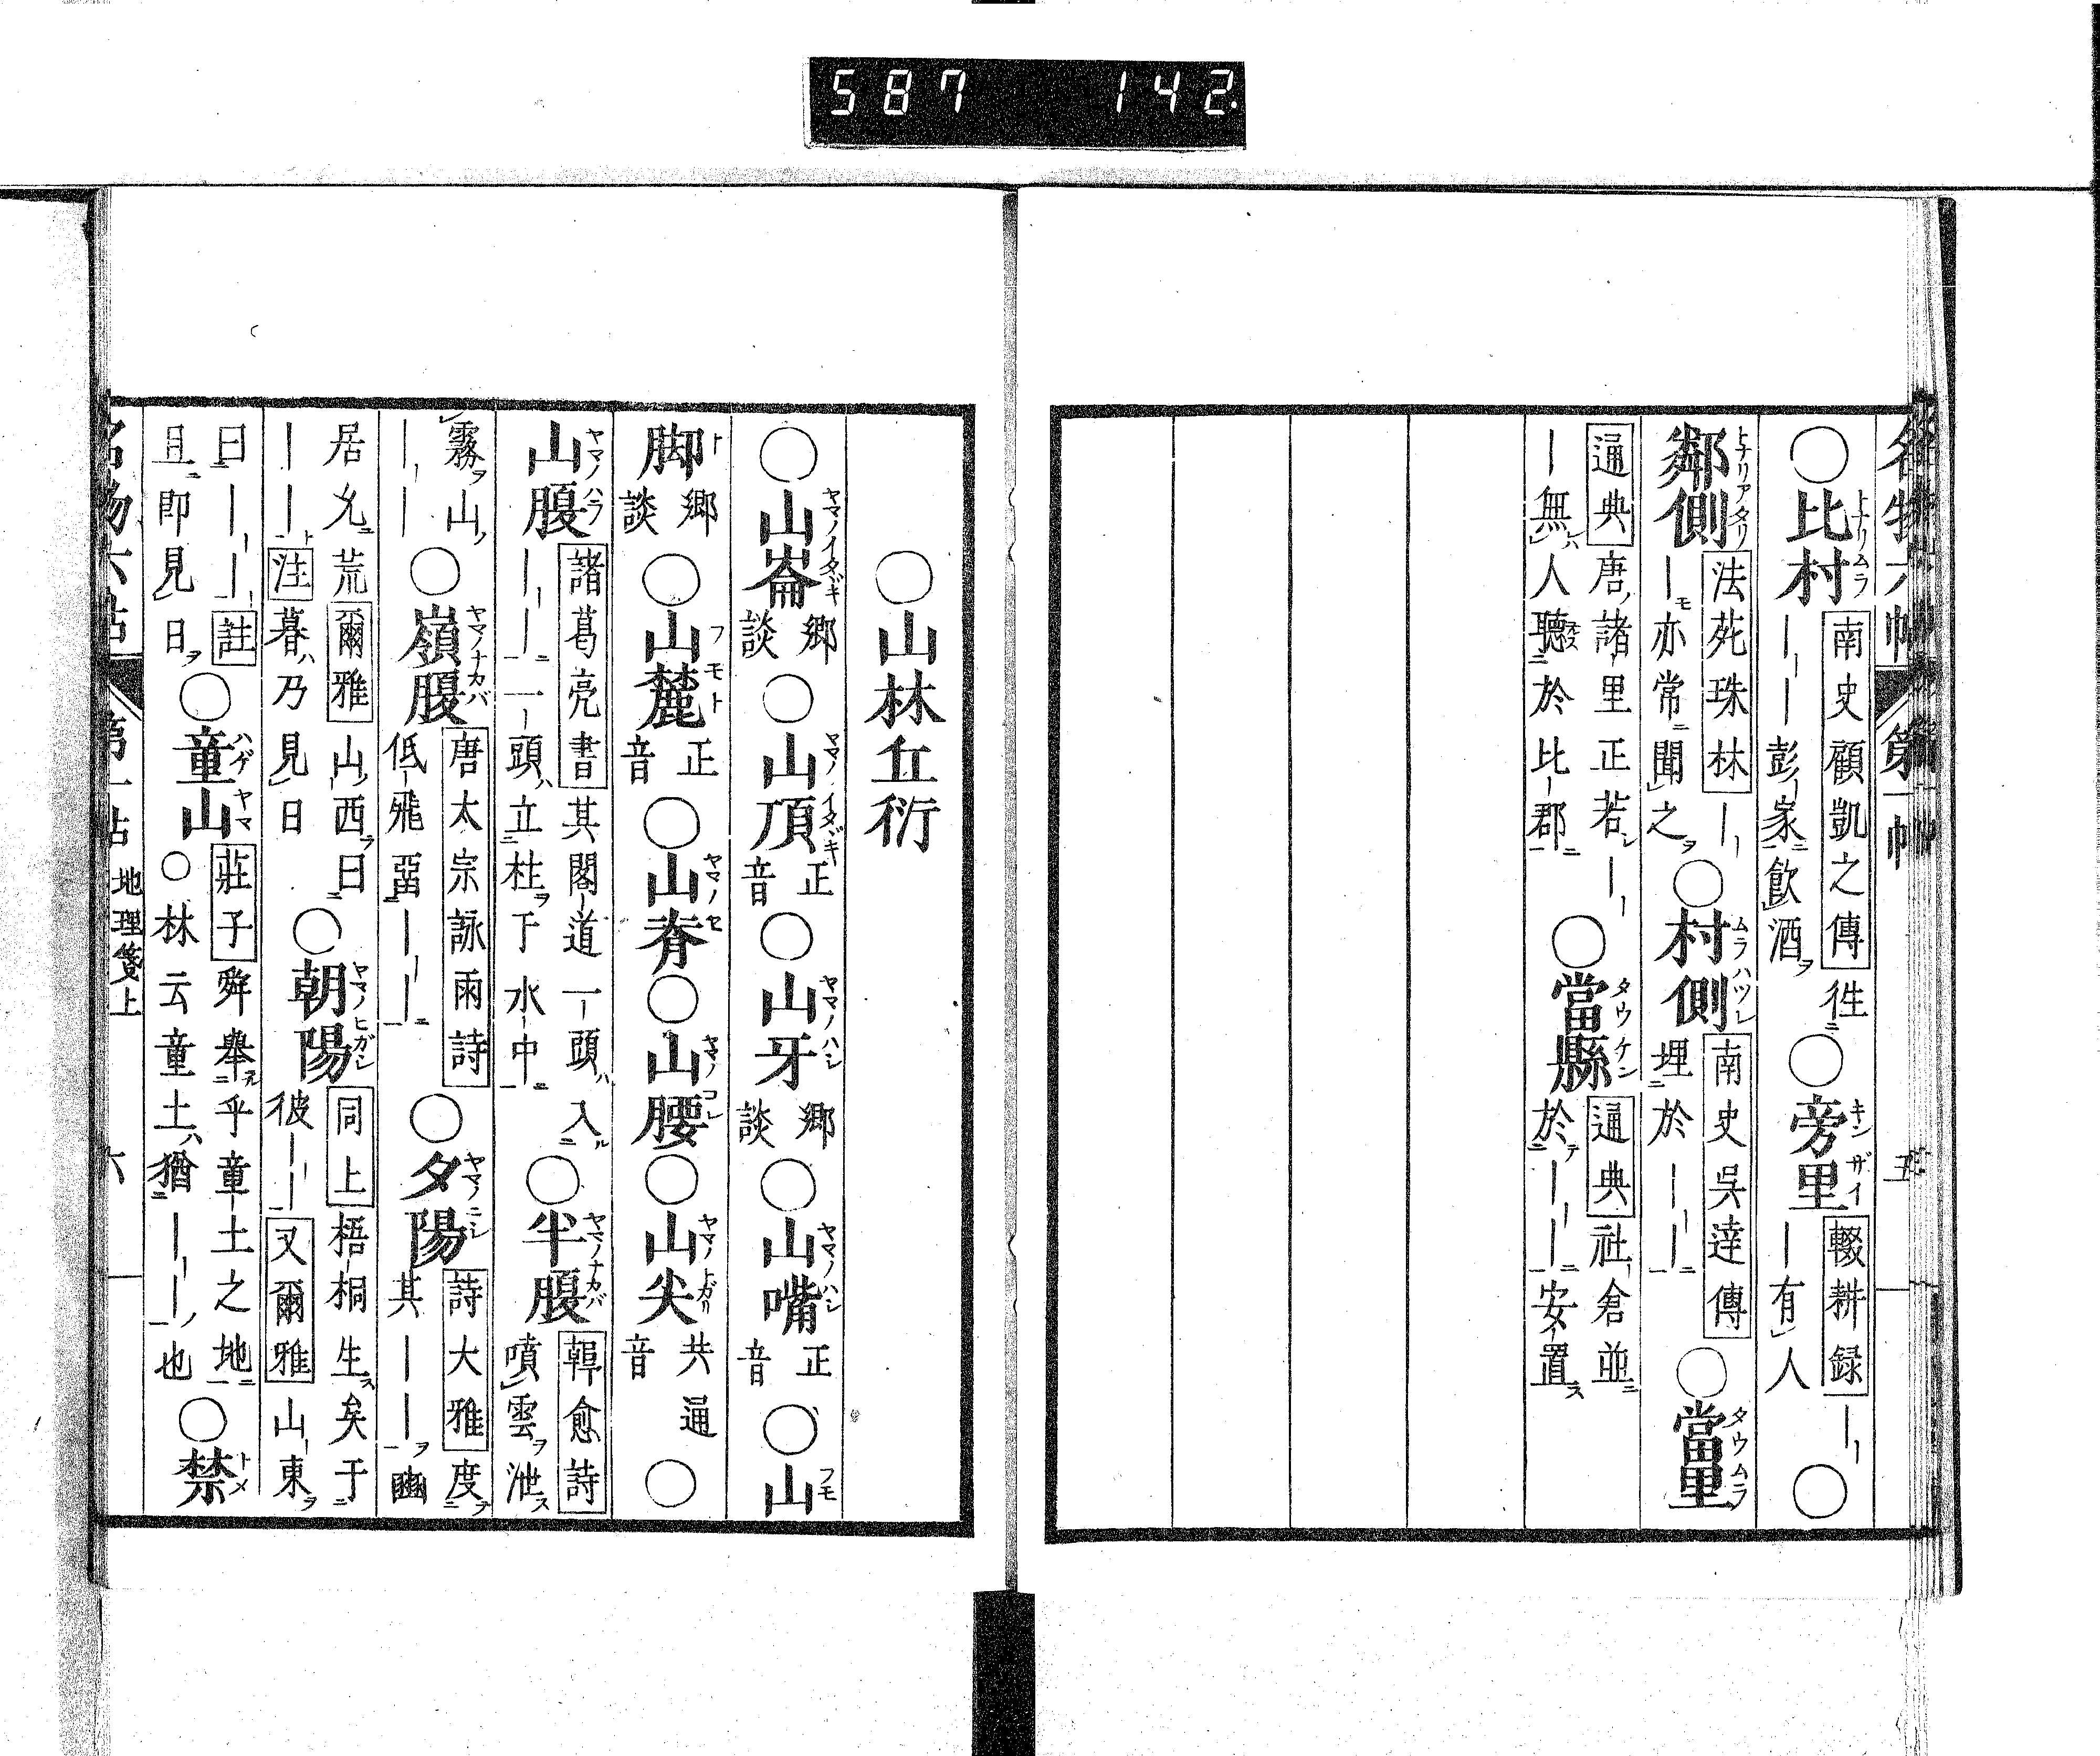 587 142
名物六帖 第一帖 五
○比村 トナリムラ 南史顧凱之傳 往二 ||彭家二飲酒ヲ ○旁里 キンザイ 輟耕録 || |有人 ○
鄰側 トナリアタリ 法苑珠林 || |モ亦常ニ聞之ヲ ○村側 ムラハヅレ 南史吳逵傳 埋二於||一 ○當里 タウムラ
通典 唐ノ諸里正若シ|| |無ハ人聽ス於比郡ニ ○當縣 タウケン 通典 社倉並ニ於テ||一安置ス
○山林丘衍
○山崙 ヤマノイタヾキ 郷談 ○山頂 ヤマノイタヾキ 正音 ○山牙 ヤマノハシ 郷談 ○山嘴 ヤマノハシ 正音 ○山 フモ
脚 ト 郷談 ○山麓 フモト 正音 ○山脊 ヤマノセ ○山腰 ヤマノコシ ○山尖 ヤマノトガリ 共通音 ○
山腹 ヤマノハラ 諸葛亮書 其閣道一頭ハ入ル ||一一頭ハ立柱ヲ下水中ニ ○半腹 ヤマノナカバ 韓愈詩 噴雲ヲ泄ス
霧ヲ山ノ || ○嶺腹 ヤマノナカバ 唐太宗詠雨詩 低飛罶||一 ○夕陽 ヤマノニシ 詩大雅 度テ 其||ヲ豳
居允ニ荒 爾雅 山ノ西ヲ曰 ||ト 注 暮ハ乃見日 ○朝陽 ヤマノヒガシ 同上 梧桐生ス矣于 彼||一 又爾雅 山東ヲ
曰||一 註 旦ニ即見日ヲ ○童山 ハゲヤマ 莊子 舜舉ル乎童土之地ニ ○林云童土ハ猶||ノ也 ○禁 トメ
名物六帖 第一帖 地理箋上 六